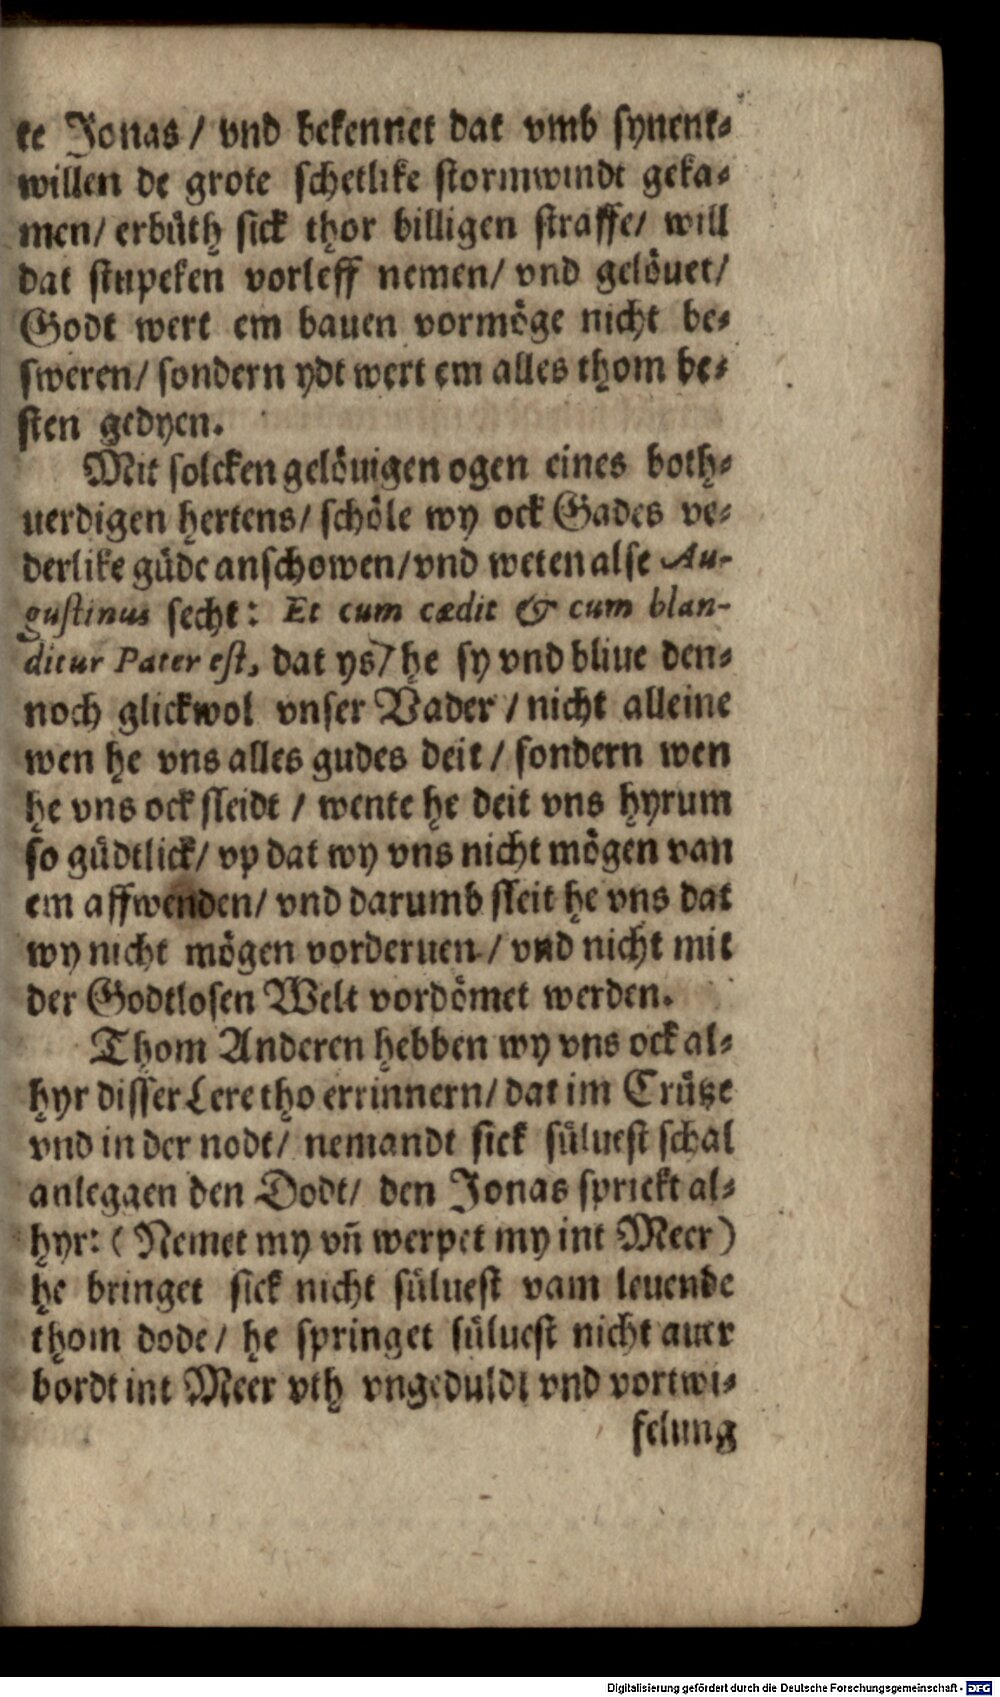 te Jonas / vnd bekennet dat vmb synent⸗
willen de grote schetlike stormwindt geka⸗
men/ erbüth sick thor billigen straffe/ will
dat stupeken vorleff nemen/ vnd gelöuet/
Godt wert em bauen vormöge nicht be⸗
sweren/ sondern ydt wert em alles thom be⸗
sten gedyen.
Mit solcken gelöuigen ogen eines both⸗
uerdigen hertens/ schöle wy ock Gades ve⸗
derlike güde anschowen/ vnd weten alse Au-
gustinus secht: Et cum cædit & cum blan-
ditur Pater est, dat ys/ he sy vnd bliue den⸗
noch glickwol vnser Vader / nicht alleine
wen he vns alles gudes deit / sondern wen
he vns ock sleidt / wente he deit vns hyrum
so güdtlick/ vp dat wy vns nicht mögen van
em affwenden/ vnd darumb sleit he vns dat
wy nicht mögen vorderuen / vnd nicht mit
der Godtlosen Welt vordömet werden.
Thom Anderen hebben wy vns ock al⸗
hyr disser Lere tho errinnern/ dat im Crütze
vnd in der nodt/ nemandt sick süluest schal
anleggen den Dodt/ den Jonas sprickt al⸗
hyr: ( Nemet my vñ werpet my int Meer )
he bringet sick nicht süluest vam leuende
thom dode/ he springet süluest nicht auer
bordt int Meer vth vngeduldt vnd vortwi⸗
felung
Digitalisierung gefördert durch die Deutsche Forschungsgemeinschaft - DFG